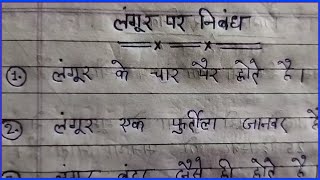 लंगूर पर निबंध
1. लंगूर के चार पैर होते है।
2. लंगूर एक फुर्तीला जानवर है
लंगूर बंदर जैसे ही होते है